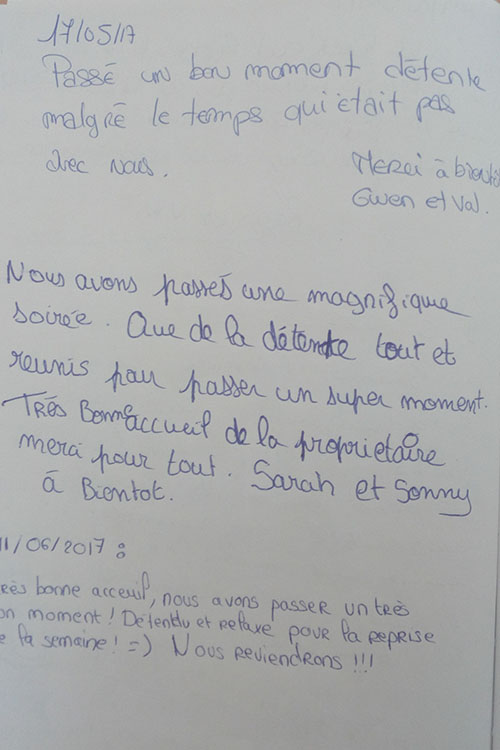 17/05/17
Passé un bon moment détente
malgré le temps qui était pas
avec nous.
Merci à bientô
Gwen et Val.
Nous avons passés une magnifique
soirée. Que de la détente tout est
reunis pour passer un super moment.
Très Bonne accueil de la proprietaire
merci pour tout. Sarah et Sonny
à Bientot.
11/06/2017 :
rès bonne acceuil, nous avons passer un très
on moment ! Détendu et relaxe pour la reprise
e la semaine ! =) Nous reviendrons !!!